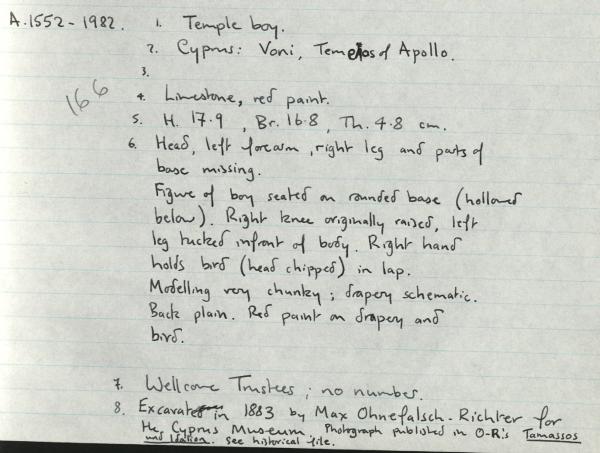 A.1552-1982. 1. Temple boy.
2. Cyprus: Voni, Temenos of Apollo.
3.
166
4. Limestone, red paint.
5. H. 17.9, Br. 16.8, Th. 4.8 cm.
6. Head, left forearm, right leg and parts of
base missing.
Figure of boy seated on rounded base (hollowed
below). Right knee originally raised, left
leg tucked infront of body. Right hand
holds bird (head chipped) in lap.
Modelling very chunky; drapery schematic.
Back plain. Red paint on drapery and
bird.
7. Wellcome Trustees; no number.
8. Excavated in 1883 by Max Ohnefalsch-Richter for
the Cyprus Museum Photograph published in O-R's Tamassos
und Idalion. See historical file.